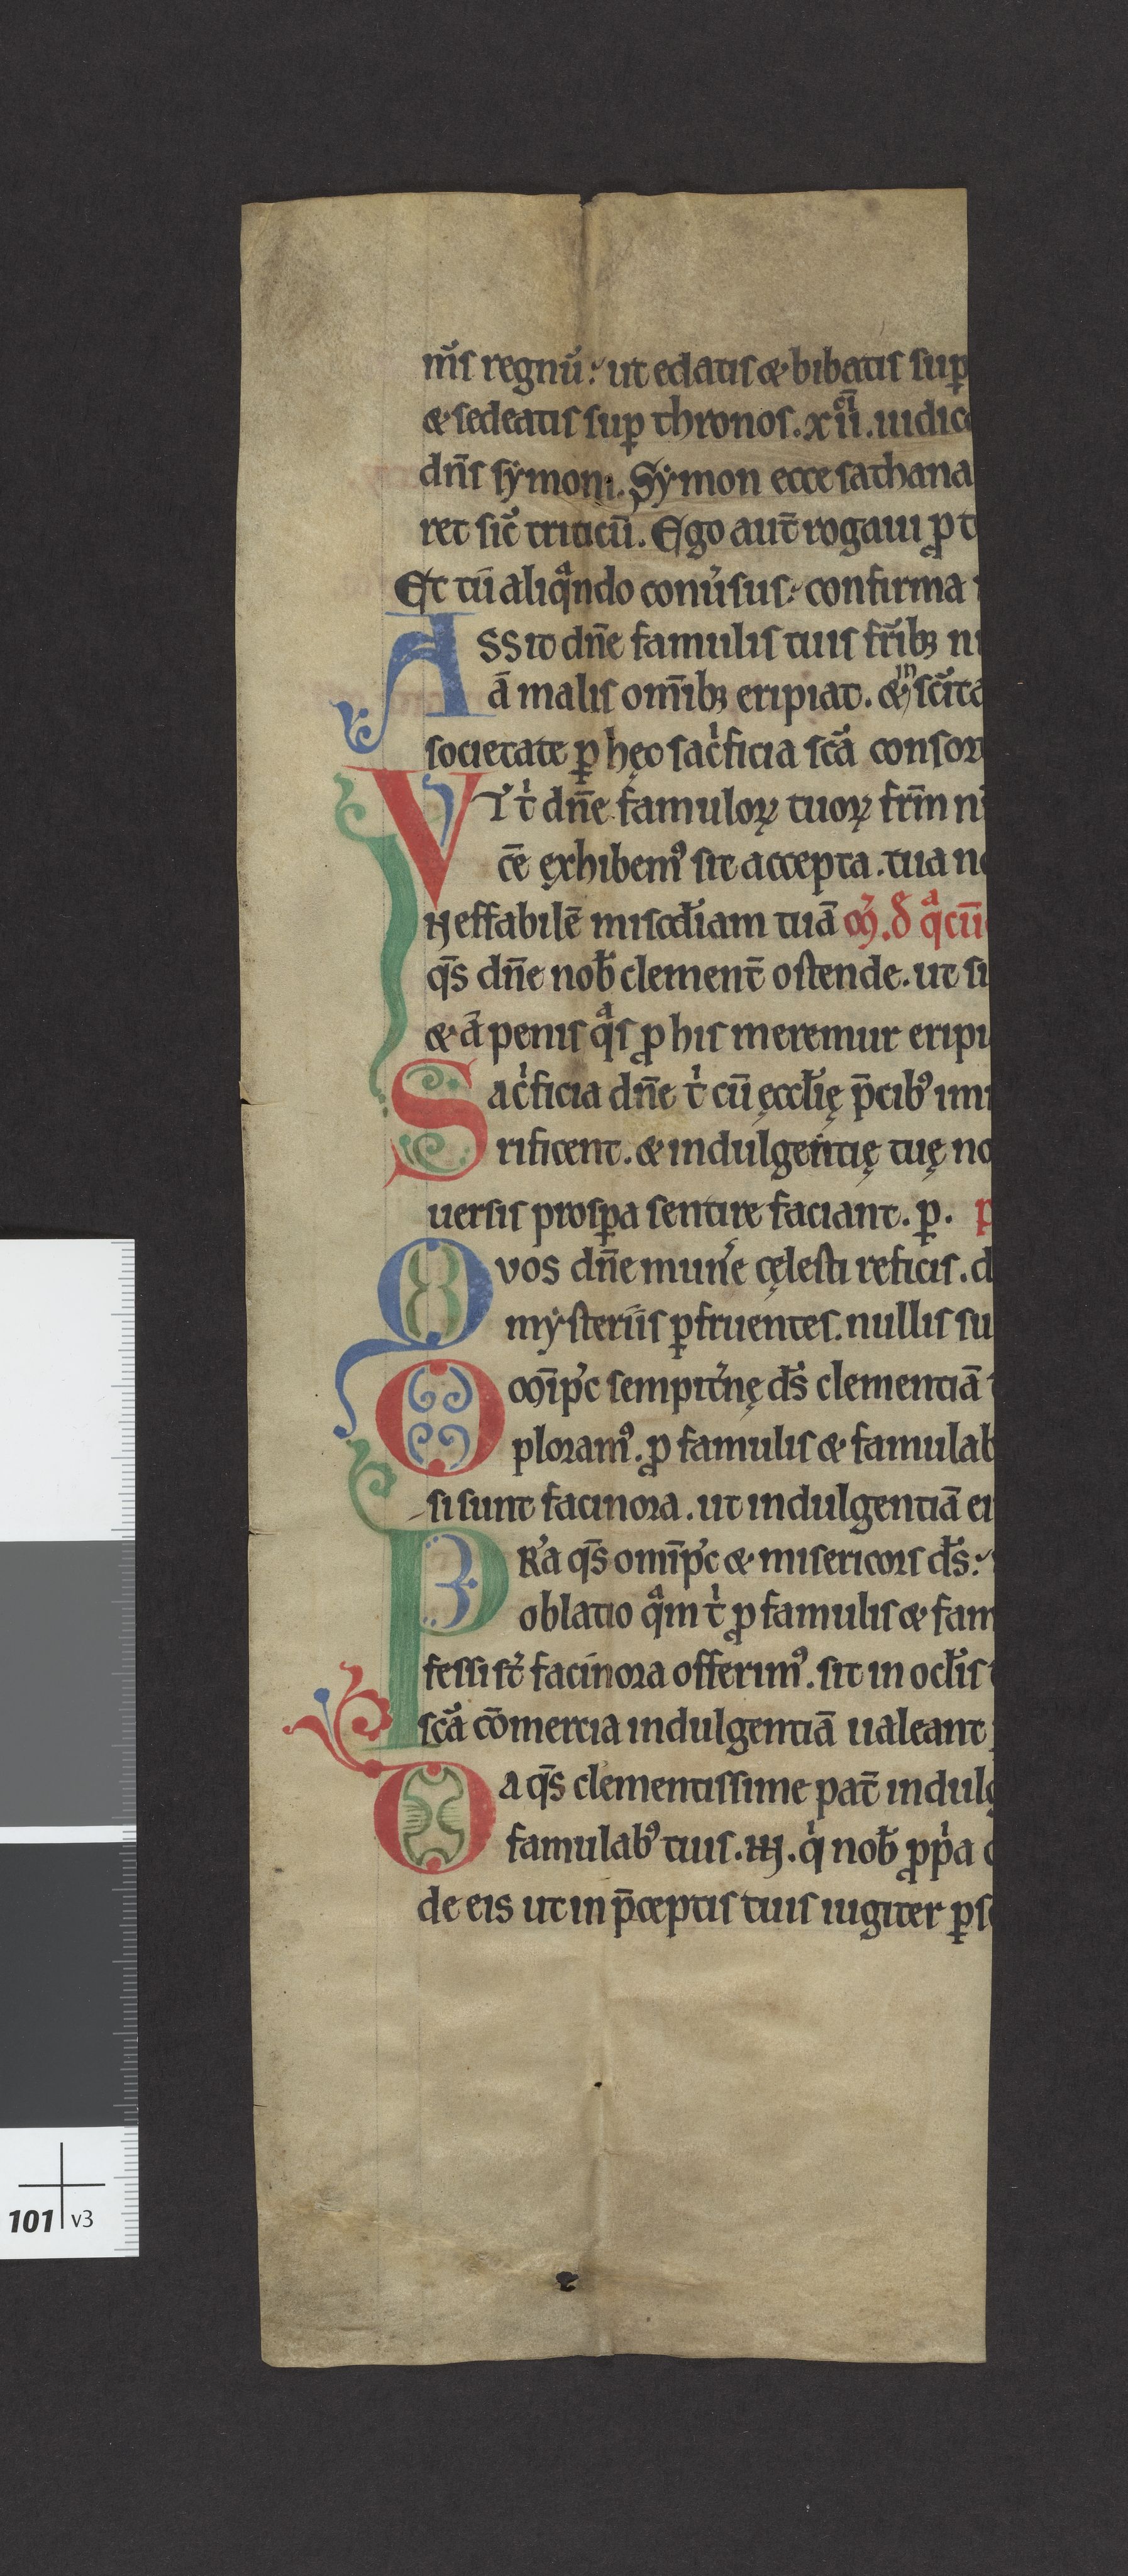 nr̄s regnū: ut edatis & bibatis sup̱
& sedeatis sup̱ thronos. xii. iudic
dn̄s symoni. Symon ecce sathana
ret sic̄ triticū. Ego aut̄ rogaui ꝓ t
Et tu aliqͣndo conu̓sus: confirma
Assit dn̄e famulis tuis fr̄ibꝫ n
a malis om̄ibꝫ eripiat. & in sc̄ita
societate ꝑ hęc sac̓ficia sc̄a consor
VT tͥ dn̄e famuloꝝ tuoꝝ fr̄m n
cē exhibemꝰ sit accepta. tua n
Ineffabilē misc̄diam tuā Oꝫ. ꝺ qͣcū
qs̄ dn̄e nob̄ clement̄ ostende. ut si
& a penis qͣs ꝓ his meremur eripi
Sac̓ficia dn̄e tͥ cū ęcclīę p̄cibꝰ im
rificent. & indulgentię tuę no
uersis prosꝑa sentire faciant. ꝑ. p
Quos dn̄e mun̓e cęlesti reficis. d
mẏsteriis ꝑfruentes. nullis su
Om̄ip̄c sempit̓nę ds̄ clementiā
ploramꝰ. ꝓ famulis & famulab
si sunt facinora. ut indulgentiā ei
PRa qs̄ om̄ip̄c & misericors ds̄:
oblatio qͣm tͥ ꝓ famulis & fam
fessi st̄ facinora offerimꝰ. sit in ocl̄is
sc̄a cōmercia indulgentiā ualeant
Da qs̄ clementissime pat̄ indulg
famulabꝰ tuis. N. qͥ nob̄ ꝓp̓a
de eis ut in p̄ceptis tuis iugiter ꝑs
101 v3